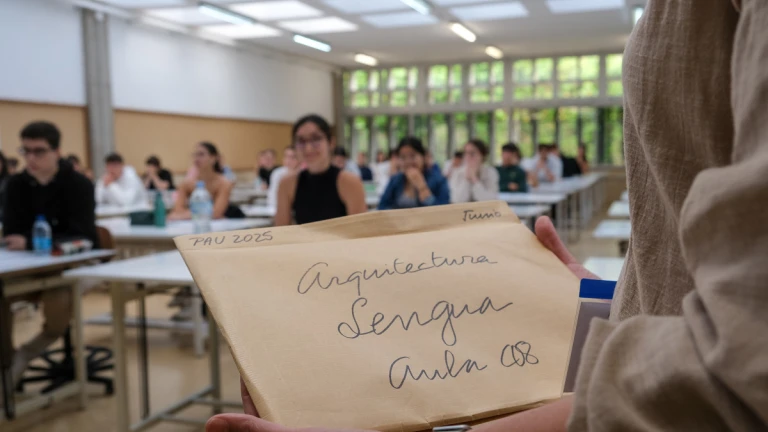 PAU 2025
Junio
Arquitectura
Lengua
Aula C08